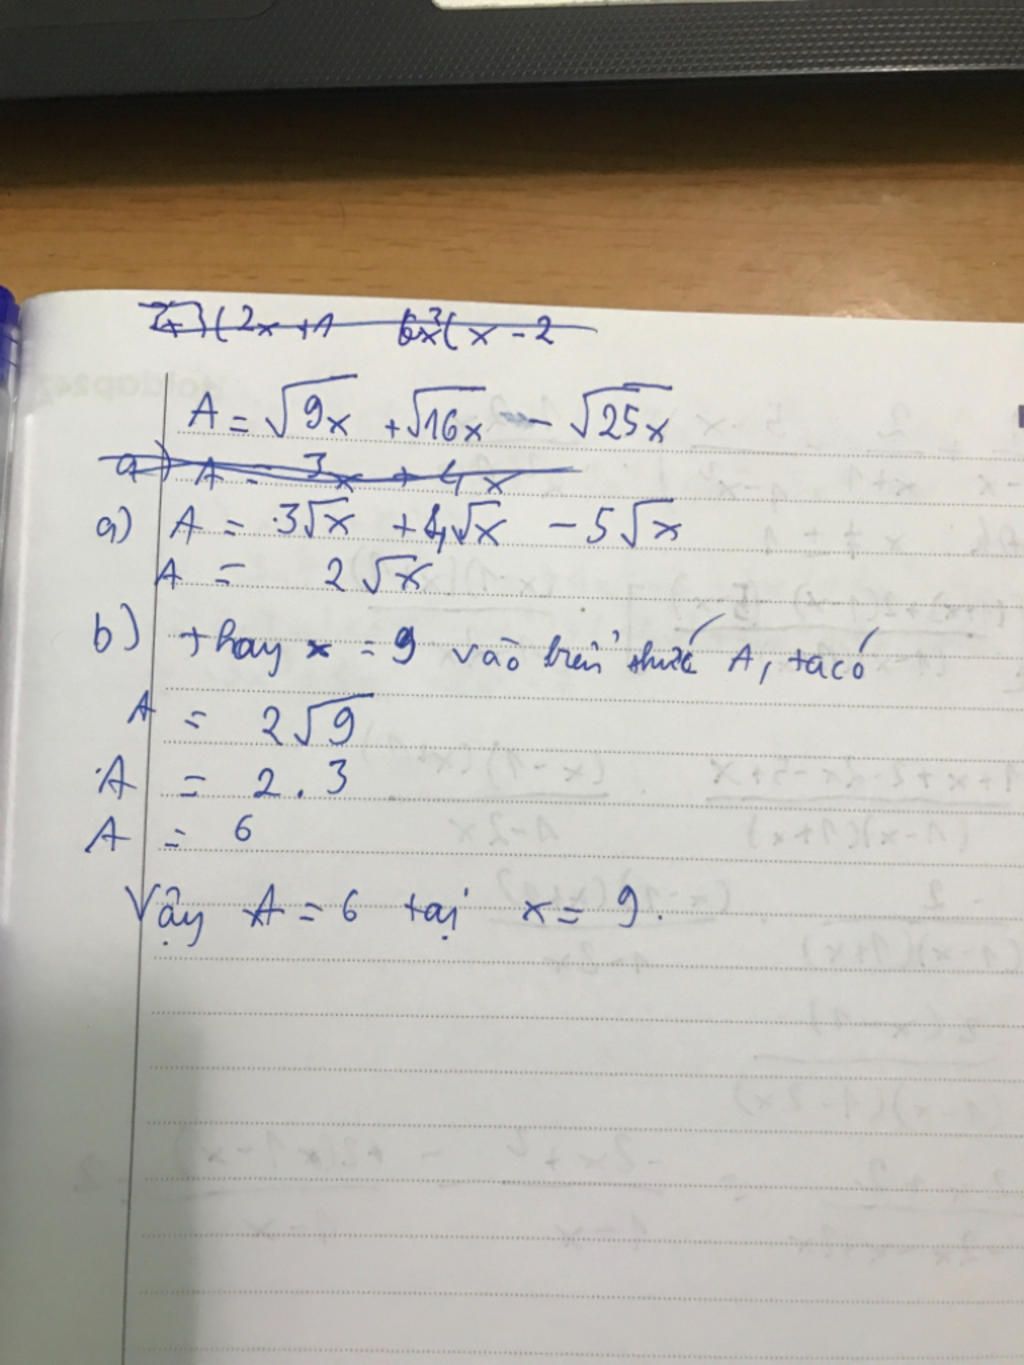 A = √9x + √16x - √25x
a) A = 3x + 4x
a) A = 3√x + 4√x - 5√x
A = 2√x
b) thay x = 9 vào biểu thức A, ta có
A = 2√9
A = 2.3
A = 6
Vậy A = 6 tại x = 9.